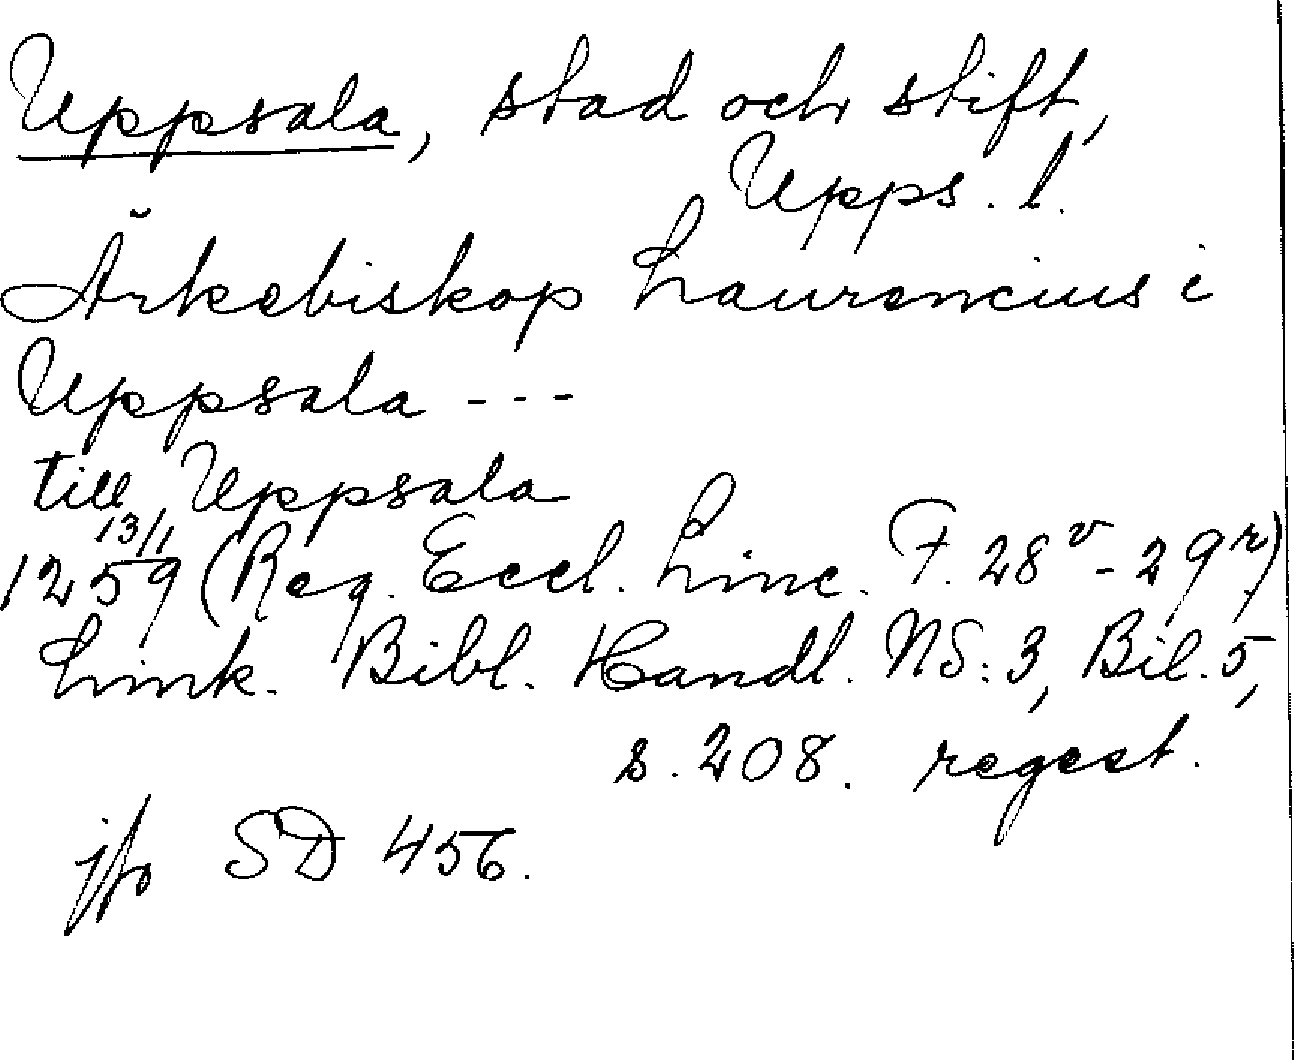 Uppsala, stad och stift,
Upps. l.
Ärkebiskop Laurencius i
Uppsala ---
till Uppsala
13/1
1259 (Reg. Eccl. Linc. F. 28v - 29r)
Link. Bibl. Handl. NS: 3, Bil. 5,
s. 208. regest.
jfr SD 456.